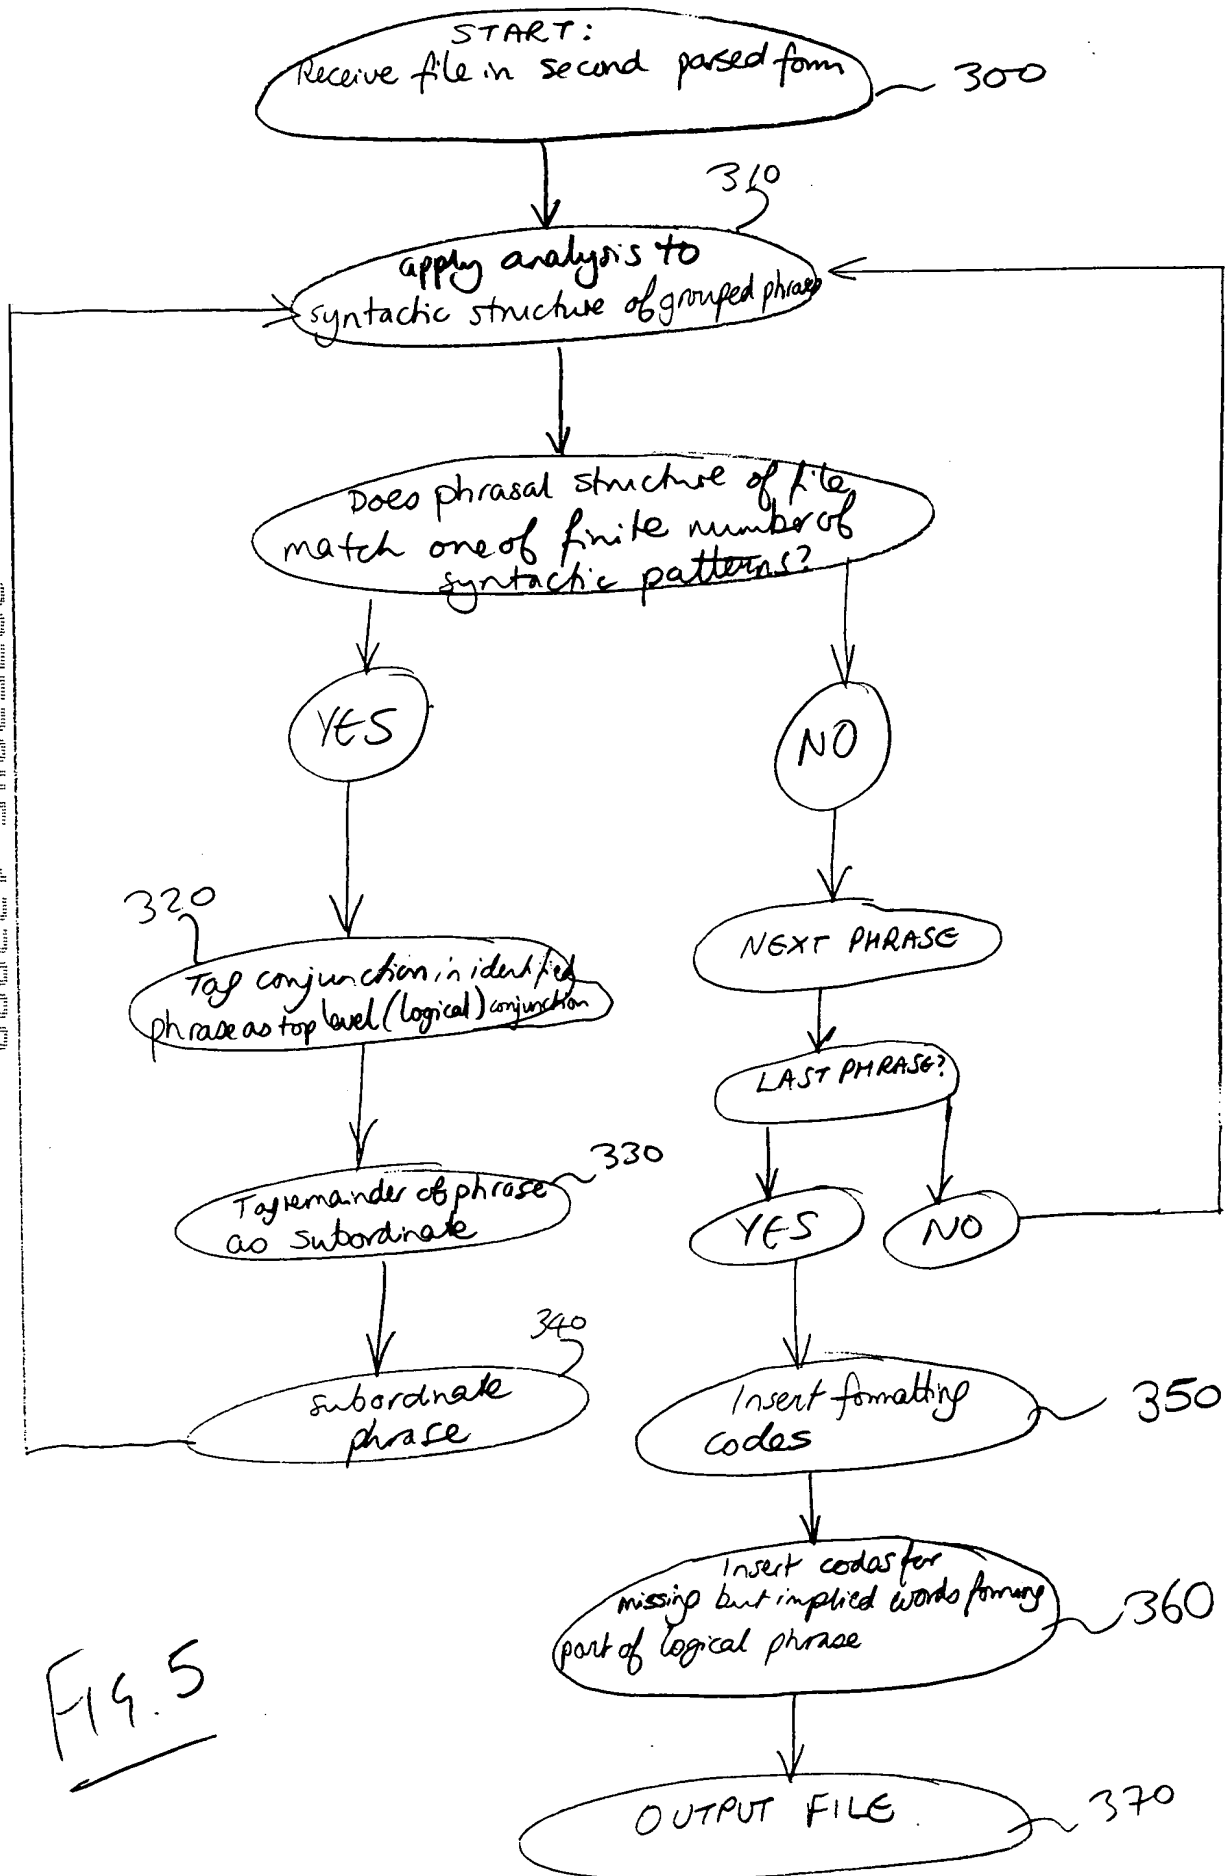 START:
Receive file in second parsed form
300
310
apply analysis to
syntactic structure of grouped phrases
Does phrasal structure of file
match one of finite number of
syntactic patterns?
YES
NO
320
Tag conjunction in identified
phrase as top level (logical) conjunction
NEXT PHRASE
LAST PHRASE?
330
Tag remainder of phrase
as subordinate
YES
NO
340
subordinate
phrase
Insert formatting
codes
350
Insert codes for
missing but implied words forming
part of logical phrase
360
FIG. 5
OUTPUT FILE
370